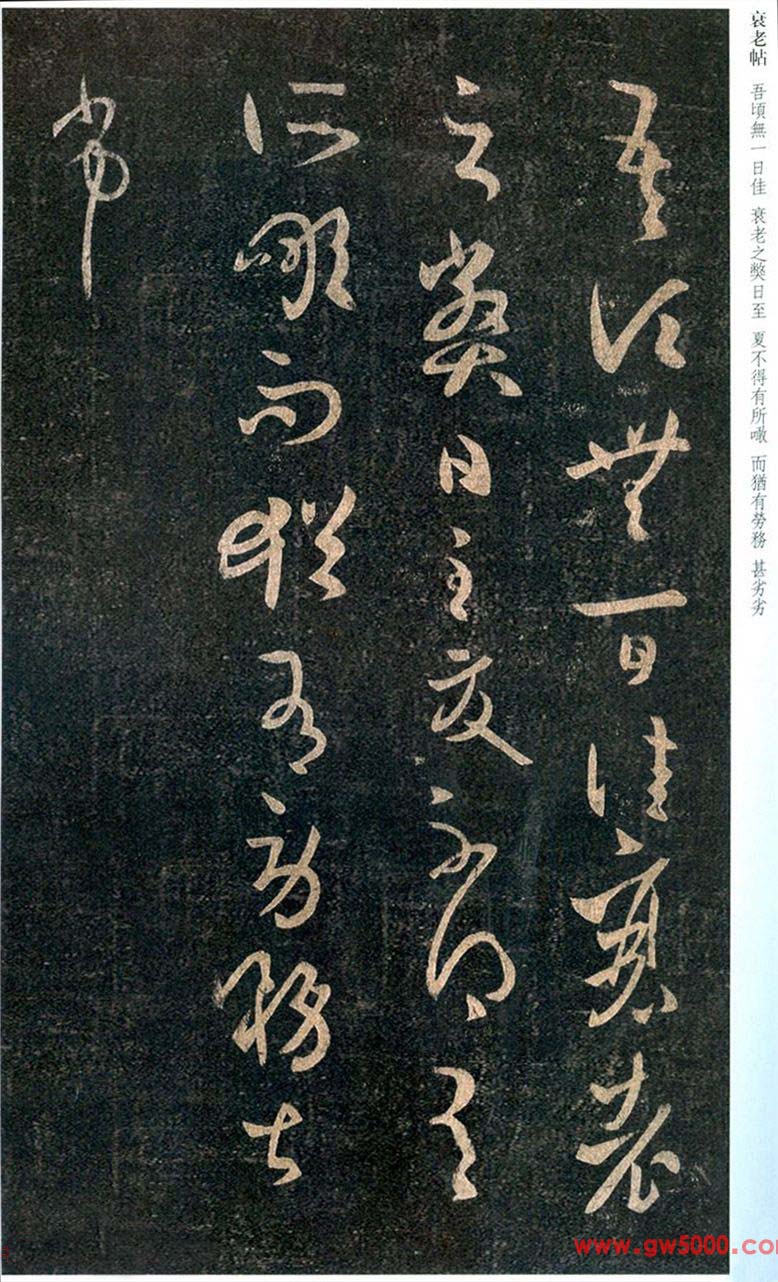 衰老帖 吾頃無一日佳 衰老之獘日至 夏不得有所噉 而猶有勞務 甚劣劣
吾頃無一日佳衰老
之獘日至夏不得有
所噉而猶有勞務甚
劣劣
www.gw5000.com